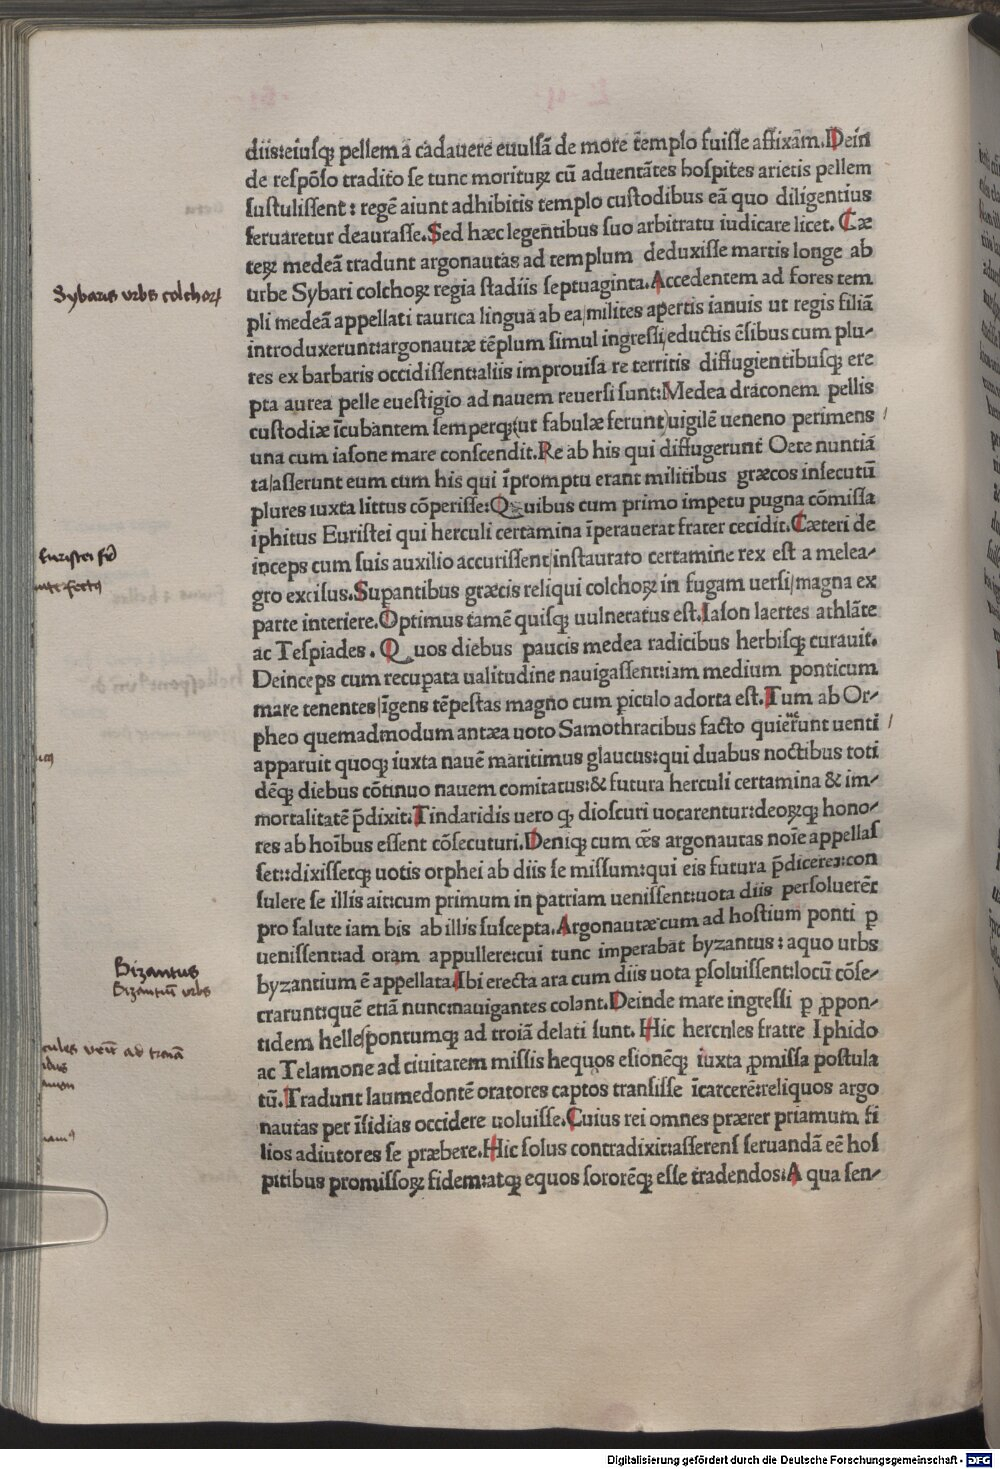 diis:eiusq; pellem a cadauere euulsã de more templo fuisse affixam. Dein
de respõso tradito se tunc morituꝝ cũ aduentãtes hospites arietis pellem
sustulissent: regẽ aiunt adhibitis templo custodibus eã quo diligentius
seruaretur deaurasse. Sed hæc legentibus suo arbitratu iudicare licet. Cæ
teꝝ medeã tradunt argonautas ad templum deduxisse martis longe ab
urbe Sybari colchoꝝ regia stadiis septuaginta. Accedentem ad fores tem
Sybaris urbs colchoꝝ
pli medeã appellati taurica lingua ab ea/milites apertis ianuis ut regis filiã
introduxerunt:argonautæ tẽplum simul ingressi/eductis ẽsibus cum plu-
res ex barbaris occidissent:aliis improuisa re territis diffugientibusq; ere
pta aurea pelle euestigio ad nauem reuersi sunt:Medea draconem pellis
custodiæ ĩcubantem semperq;(ut fabulæ ferunt)uigilẽ ueneno perimens /
una cum iasone mare conscendit. Re ab his qui diffugerunt Oete nuntiã
ta/asserunt eum cum his qui ĩpromptu erant militibus græcos insecutũ
plures iuxta littus cõperisse:Quibus cum primo impetu pugna cõmissa
iphitus Euristei qui herculi certamina ĩperauerat frater cecidit. Cæteri de
Euristei frꝰ
interfectꝰ
inceps cum suis auxilio accurissent/instaurato certamine rex est a melea-
gro excisus. Supantibus græcis reliqui colchoꝝ in fugam uersi/magna ex
parte interiere. Optimus tamẽ quisq; uulneratus est. Iason laertes athlãte
ac Tespiades. Quos diebus paucis medea radicibus herbisq; curauit.
Deinceps cum recuꝑata ualitudine nauigassent:iam medium ponticum
mare tenentes/ĩgens tẽpestas magno cum ꝑiculo adorta est. Tum ab Or-
pheo quemadmodum antæa uoto Samothracibus facto quierunt uenti /
apparuit quoq; iuxta nauẽ maritimus glaucus:qui duabus noctibus toti
dẽq; diebus cõtinuo nauem comitatus:& futura herculi certamina & im-
mortalitatẽ p̃dixit:Tindaridis uero q̃ dioscuri uocarentur:deoꝝq; hono-
res ab hoĩbus essent cõsecuturi. Deniq; cum oẽs argonautas noĩe appellas
set::dixissetq; uotis orphei ab diis se missum:qui eis futura p̃diceret:con
sulere se illis ait:cum primum in patriam uenissent:uota diis persoluerẽt
pro salute iam bis ab illis suscepta. Argonautæ cum ad hostium ponti ꝑ
uenissent:ad oram appullere:cui tunc imperabat byzantus: aquo urbs
Bizantus
Bizantiũ urbs
byzantium ẽ appellata. Ibi erecta ara cum diis uota ꝑsoluissent:locũ cõse-
crarunt:quẽ etiã nunc:nauigantes colant. Deinde mare ingressi ꝑ ꝓpon-
tidem hellespontumq; ad troiã delati sunt. Hic hercules fratre Iphido
ac Telamone ad ciuitatem missis hequos esionẽq; iuxta ꝓmissa postula
tũ. Tradunt laumedontẽ oratores captos transisse ĩcarcerẽ:reliquos argo
nautas per ĩsidias occidere uoluisse. Cuius rei omnes præter priamum fi
lios adiutores se præbere. Hic solus contradixit:asserens seruandã eẽ hos
pitibus promissoꝝ fidem:atq; equos sororẽq; esse tradendos:A qua sen-
Digitalisierung gefördert durch die Deutsche Forschungsgemeinschaft - DFG